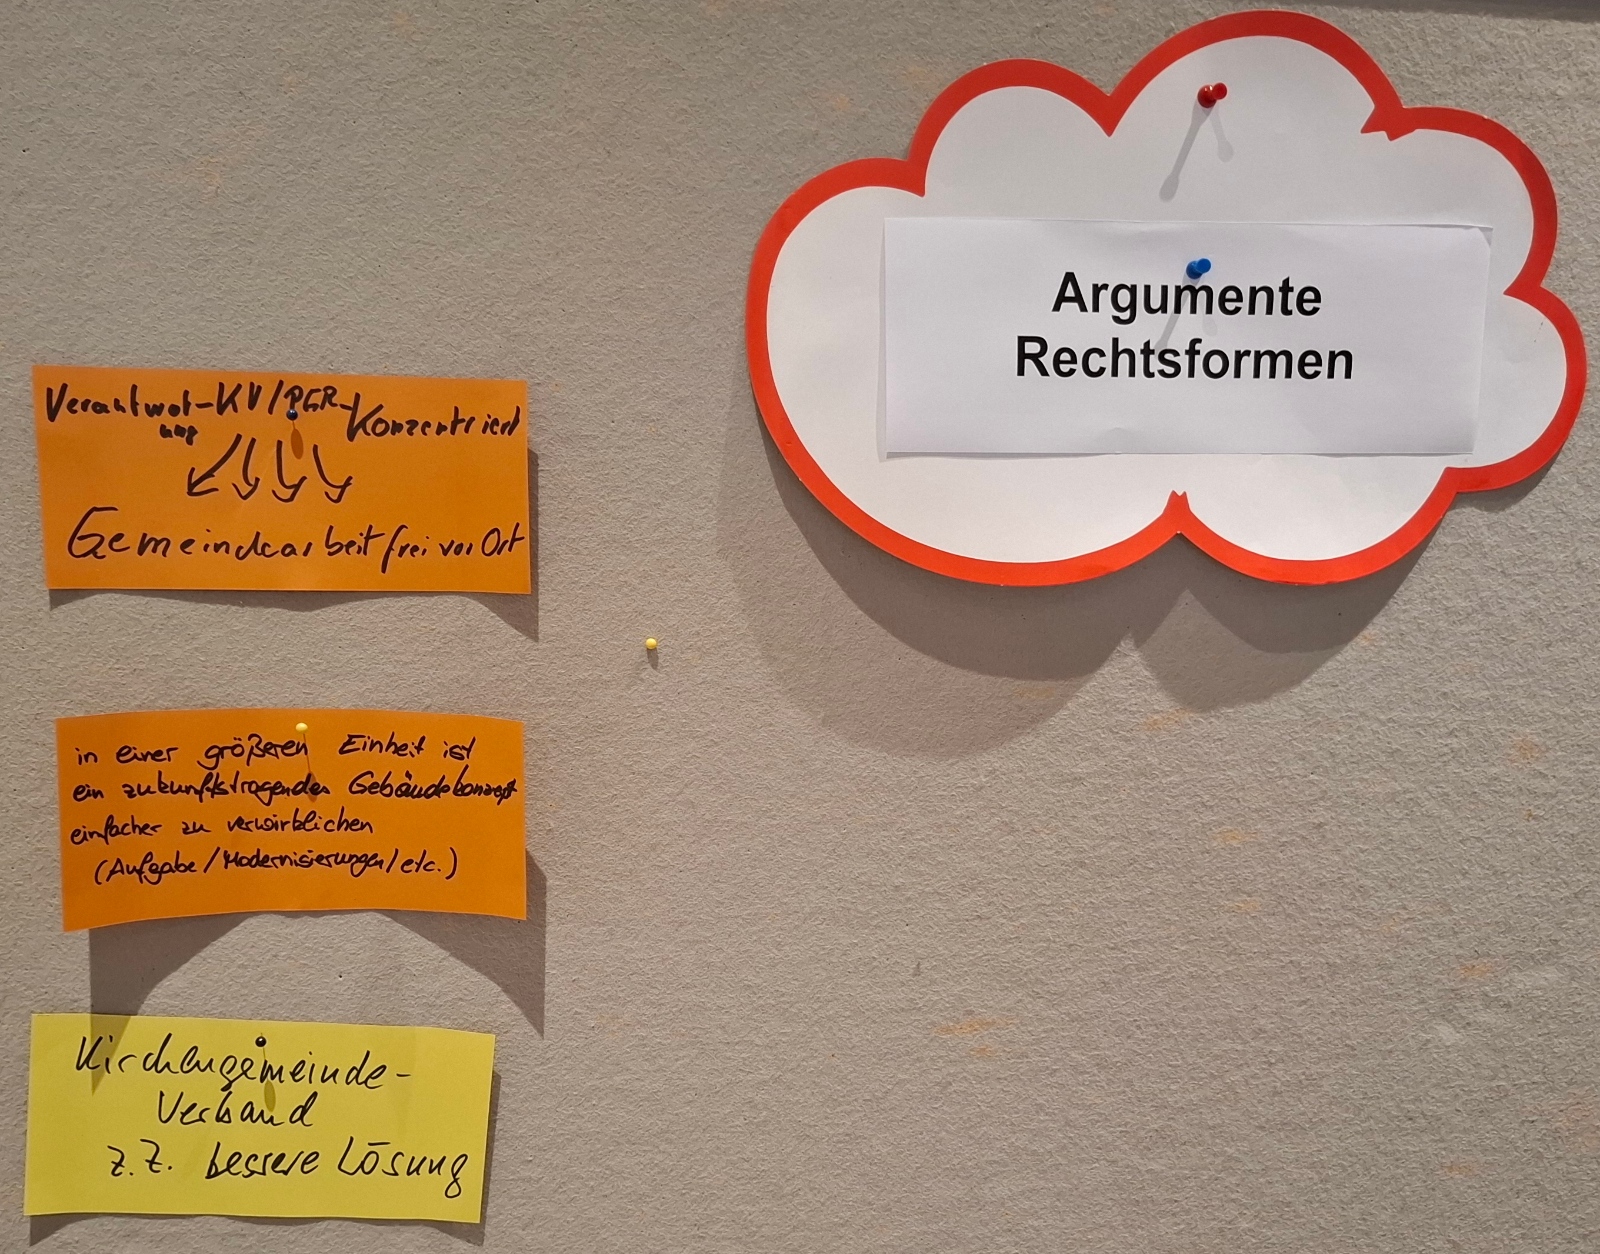 Argumente
Rechtsformen
Verantwort-KV/PGR-Konzentriert
ung
Gemeindearbeit frei vor Ort
in einer größeren Einheit ist
ein zukunftstragendes Gebäudekonzept
einfacher zu verwirklichen
(Aufgabe/Modernisierungen/etc.)
Kirchengemeinde-
Verband
z.Z. bessere Lösung